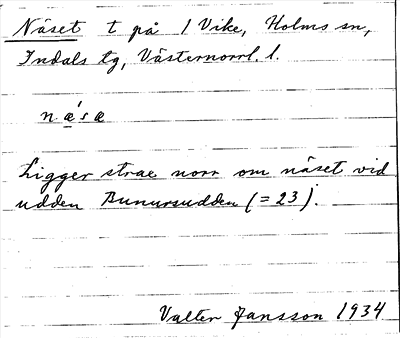 Näset t på 1 Vike, Holms sn,
Indals tg, Västernorrl. l.
næ´sæ
Ligger strax norr om näset vid
udden Bunursudden (= 23).
Valter Jansson 1934